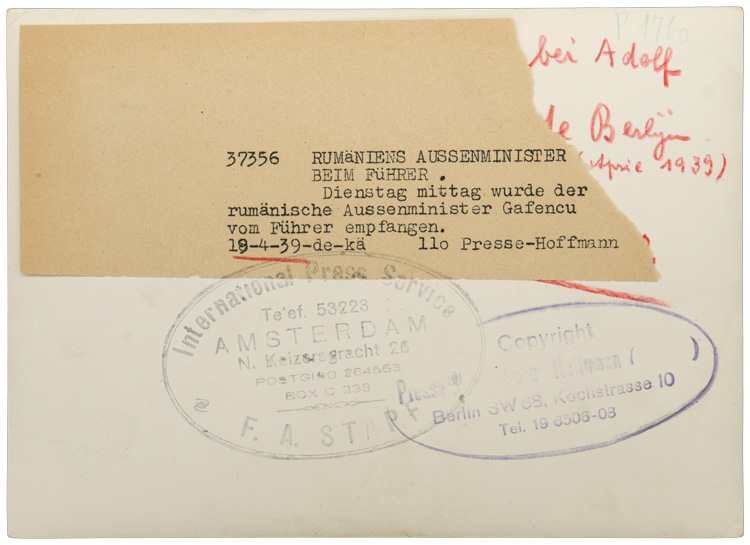 P 1760
bei Adolf
Berlijn
1939)
37356 RUMäNIENS AUSSENMINISTER
BEIM FüHRER.
Dienstag mittag wurde der
rumänische Aussenminister Gafencu
vom Führer empfangen.
19-4-39-de-kä 110 Presse-Hoffmann
International Press Service
Telef. 53223
AMSTERDAM
N. Keizersgracht 26
POSTGIRO 264553
BOX C 338
F. A. STAPF
Copyright
Presse Hoffmann ( )
Berlin SW 68, Kochstrasse 10
Tel. 19 6506-08